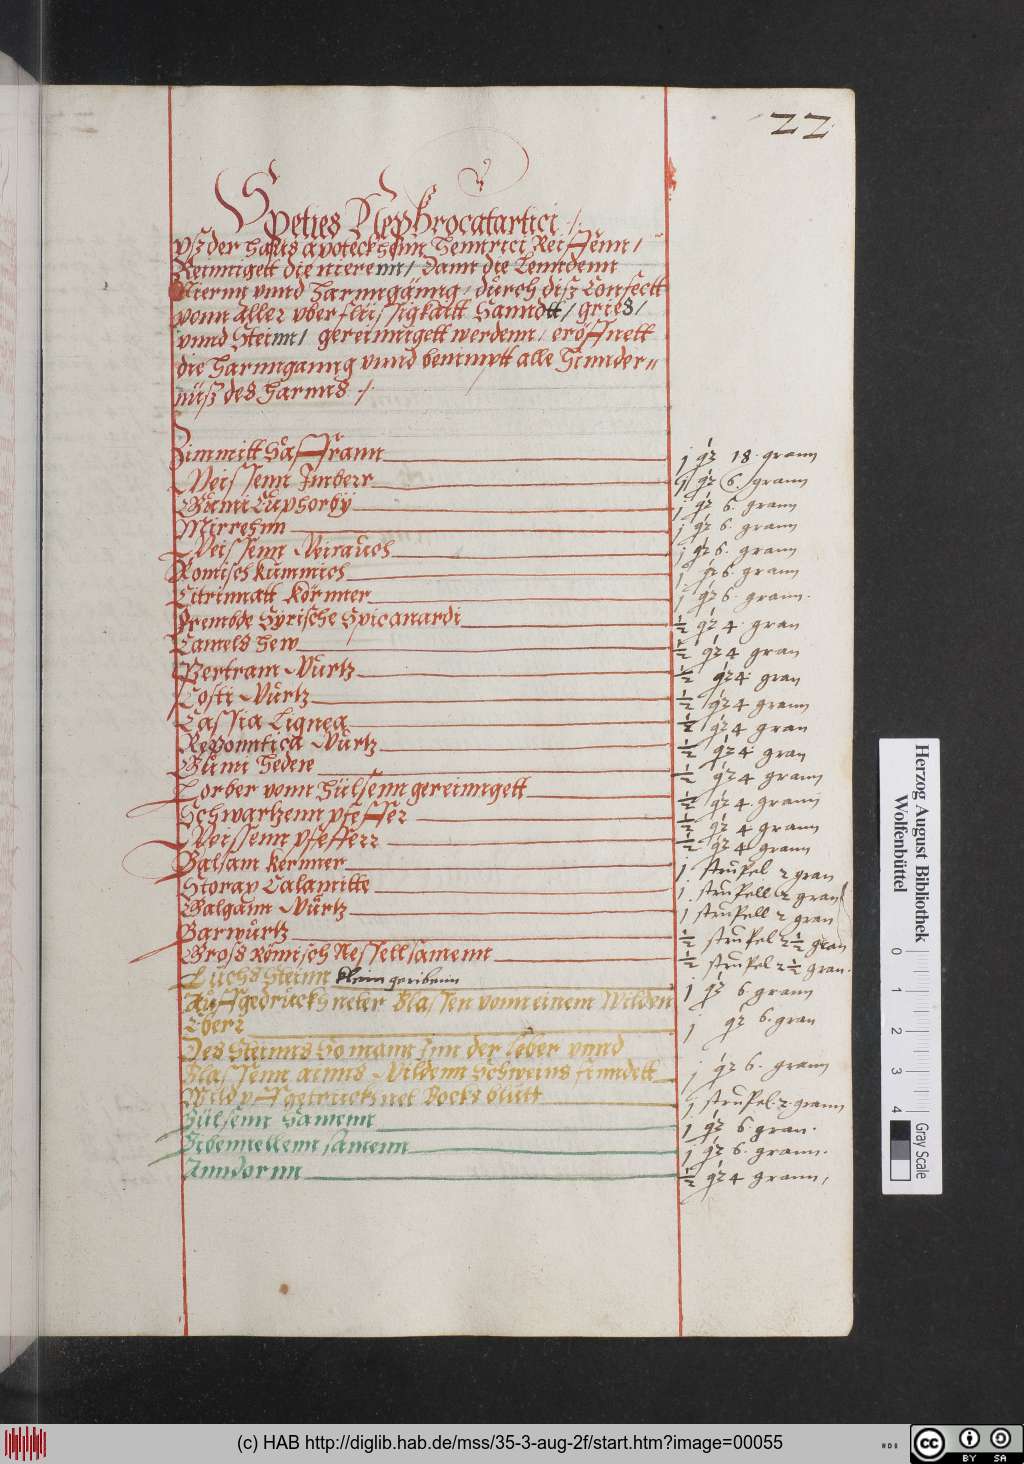 22
Species Nephrocatartici /.
vsz der Haus apoteckh Henn Hennrici Reiffenn /
Reinnigett die nierenn / Dann die Lenndenn
Niernn vnnd Harnngänng / durch disz Confectt
vonn aller vberflüssigkaitt Sanndtt / grieß /
vnnd Steinn / gereinnigett werdenn / eröffnett
die Harnngänng vnnd benimptt alle Hinnder=
nüsz des Harnns /.
Zimmitt Saffrann j qʒ 18 grann
Weissenn Imberr j qʒ 6. grann
Gumi Euphorby j qʒ 6. grann
Mirrehnn j qʒ 6. grann
Weissenn Weirauch j qʒ 6. grann
Romisch Kummich j qʒ 6. grann
Citrinnatt Körnner j qʒ 6. grann.
Frembde Syrische Spicanardi ½ qʒ 4. gran
Camels Hew ½ qʒ 4 gran
Bertram Wurtz ½ qʒ 4 gran
Costi Wurtz ½ qʒ 4 grann
Cassia Lignea ½ qʒ 4 gran
Reponntica Wurtz ½ qʒ 4 gran
Gumi Hedere ½ qʒ 4 grann
Lorber vonn Hülsenn gereinnigett ½ qʒ 4. grann
Schwartzenn pfeffer ½ qʒ 4 grann
Weissenn pfefferr ½ qʒ 4 grann
Balsam Kernner j strupel 2 gran
Storax Calamitte j. strupell 2 gran
Galgann Wurtz j strupell 2 gran
Barwurtz ½ strupel 2½ gran
Gross Römisch Nessellsamenn ½ strupel 2½ gran.
Luchs Steinn klein geribenn j qʒ 6 grann
Auffgedruckhneter Blassen vonn einem Wilden
Eberr j qʒ 6. gran
Des Steinns So mann Inn der Leber vnnd
Blassenn ainns Wildenn Schweins finndett j qʒ 6. grann
Wild vffgetrucknet Bocks blutt j strupel. 2. grann
Hülsenn Samenn j qʒ 6 gran.
Bibennellenn samenn j qʒ 6. grann.
Anndornn ½ qʒ 4 grann,
Herzog August Bibliothek
Wolfenbüttel
0 1 2 3 4
Gray Scale
(c) HAB http://diglib.hab.de/mss/35-3-aug-2f/start.htm?image=00055
cc BY SA